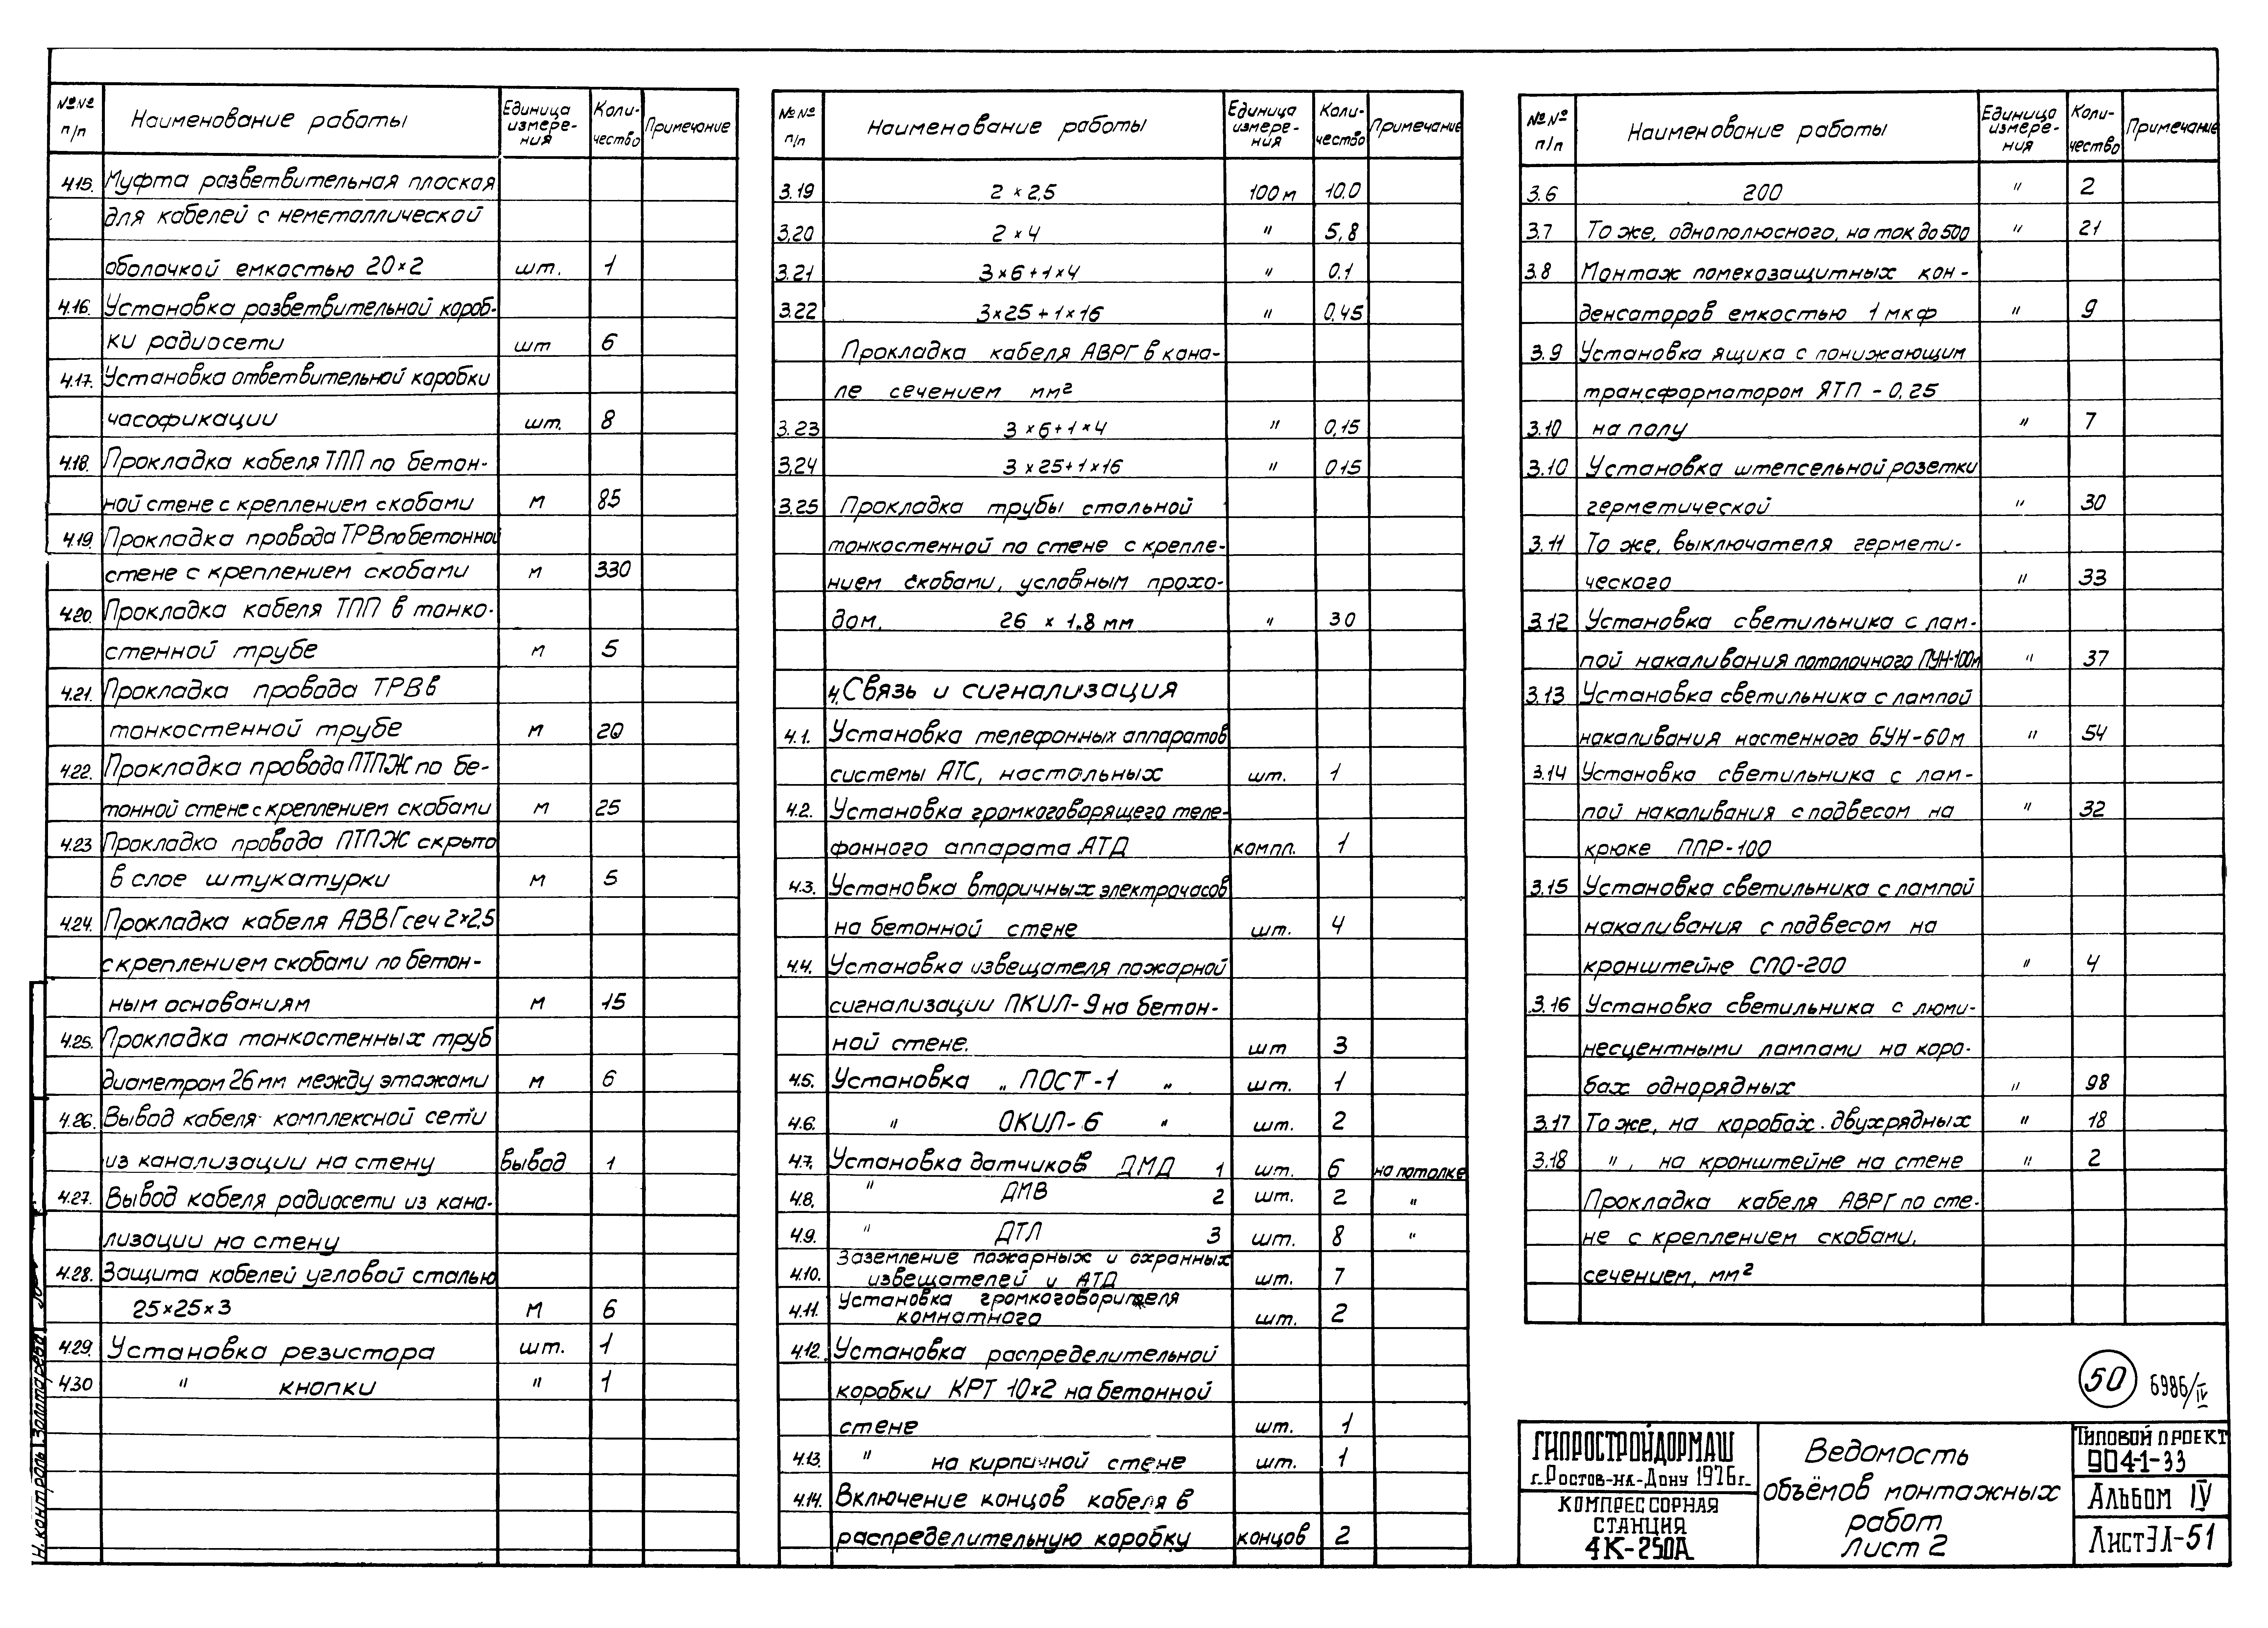 №№ п/п Наименование работы Единица измере-ния Коли-чество Примечание
4.15. Муфта разветвительная плоская
для кабелей с неметаллической
оболочкой емкостью 20×2 шт. 1
4.16. Установка разветвительной короб-
ки радиосети шт 6
4.17. Установка ответвительной коробки
часофикации шт. 8
4.18. Прокладка кабеля ТПП по бетон-
ной стене с креплением скобами м 85
4.19. Прокладка провода ТРВ по бетонной
стене с креплением скобами м 330
4.20. Прокладка кабеля ТПП в тонко-
стенной трубе м 5
4.21. Прокладка провода ТРВ в
тонкостенной трубе м 20
4.22. Прокладка провода ПТПЖ по бе-
тонной стене с креплением скобами м 25
4.23 Прокладка провода ПТПЖ скрыто
в слое штукатурки м 5
4.24. Прокладка кабеля АВВГ сеч 2×2,5
с креплением скобами по бетон-
ным основаниям м 15
4.25. Прокладка тонкостенных труб
диаметром 26 мм между этажами м 6
4.26. Вывод кабеля комплексной сети
из канализации на стену вывод 1
4.27. Вывод кабеля радиосети из кана-
лизации на стену
4.28. Защита кабелей угловой сталью
25×25×3 м 6
4.29. Установка резистора шт. 1
4.30 " кнопки " 1
Н. контроль Золотарева
№№ п/п Наименование работы Единица измере-ния Коли-чество Примечание
3.19 2 × 2,5 100 м 10.0
3.20 2 × 4 " 5,8
3.21 3×6+1×4 " 0.1
3.22 3×25+1×16 " 0,45
Прокладка кабеля АВРГ в кана-
ле сечением мм²
3.23 3×6+1×4 " 0,15
3.24 3×25+1×16 " 0.15
3.25 Прокладка трубы стальной
тонкостенной по стене с крепле-
нием скобами, условным прохо-
дом, 26 × 1.8 мм " 30
4. Связь и сигнализация
4.1. Установка телефонных аппаратов
системы АТС, настольных шт. 1
4.2. Установка громкоговорящего теле-
фонного аппарата АТД компл. 1
4.3. Установка вторичных электрочасов
на бетонной стене шт. 4
4.4. Установка извещателя пожарной
сигнализации ПКИЛ-9 на бетон-
ной стене. шт 3
4.5. Установка „ПОСТ-1" шт. 1
4.6. " ОКИЛ-6 " шт. 2
4.7. Установка датчиков ДМД 1 шт. 6 на потолке
4.8. " ДМВ 2 шт. 2 "
4.9. " ДТЛ 3 шт. 8 "
4.10. Заземление пожарных и охранных
извещателей и АТД шт. 7
4.11. Установка громкоговорителя
комнатного шт. 2
4.12. Установка распределительной
коробки КРТ 10×2 на бетонной
стене шт. 1
4.13. " на кирпичной стене шт. 1
4.14. Включение концов кабеля в
распределительную коробку концов 2
№№ п/п Наименование работы Единица измере-ния Коли-чество Примечание
3.6 200 " 2
3.7 То же, однополюсного, на ток до 500 " 21
3.8 Монтаж помехозащитных кон-
денсаторов емкостью 1 мкф " 9
3.9 Установка ящика с понижающим
трансформатором ЯТП-0,25
3.10 на полу " 7
3.10 Установка штепсельной розетки
герметической " 30
3.11 То же, выключателя гермети-
ческого " 33
3.12 Установка светильника с лам-
пой накаливания потолочного ПУН-100м " 37
3.13 Установка светильника с лампой
накаливания настенного БУН-60м " 54
3.14 Установка светильника с лам-
пой накаливания с подвесом на " 32
крюке ППР-100
3.15 Установка светильника с лампой
накаливания с подвесом на
кронштейне СПО-200 " 4
3.16 Установка светильника с люми-
несцентными лампами на коро-
бах однорядных " 98
3.17 То же, на коробах двухрядных " 18
3.18 ", на кронштейне на стене " 2
Прокладка кабеля АВРГ по сте-
не с креплением скобами,
сечением, мм²
50 6986/IV
ГИПРОСТРОЙДОРМАШ
г. Ростов-на-Дону 1976г.
КОМПРЕССОРНАЯ
СТАНЦИЯ
4К-250А
Ведомость
объёмов монтажных
работ
Лист 2
Типовой проект
904-1-33
Альбом IV
Лист ЭЛ-51